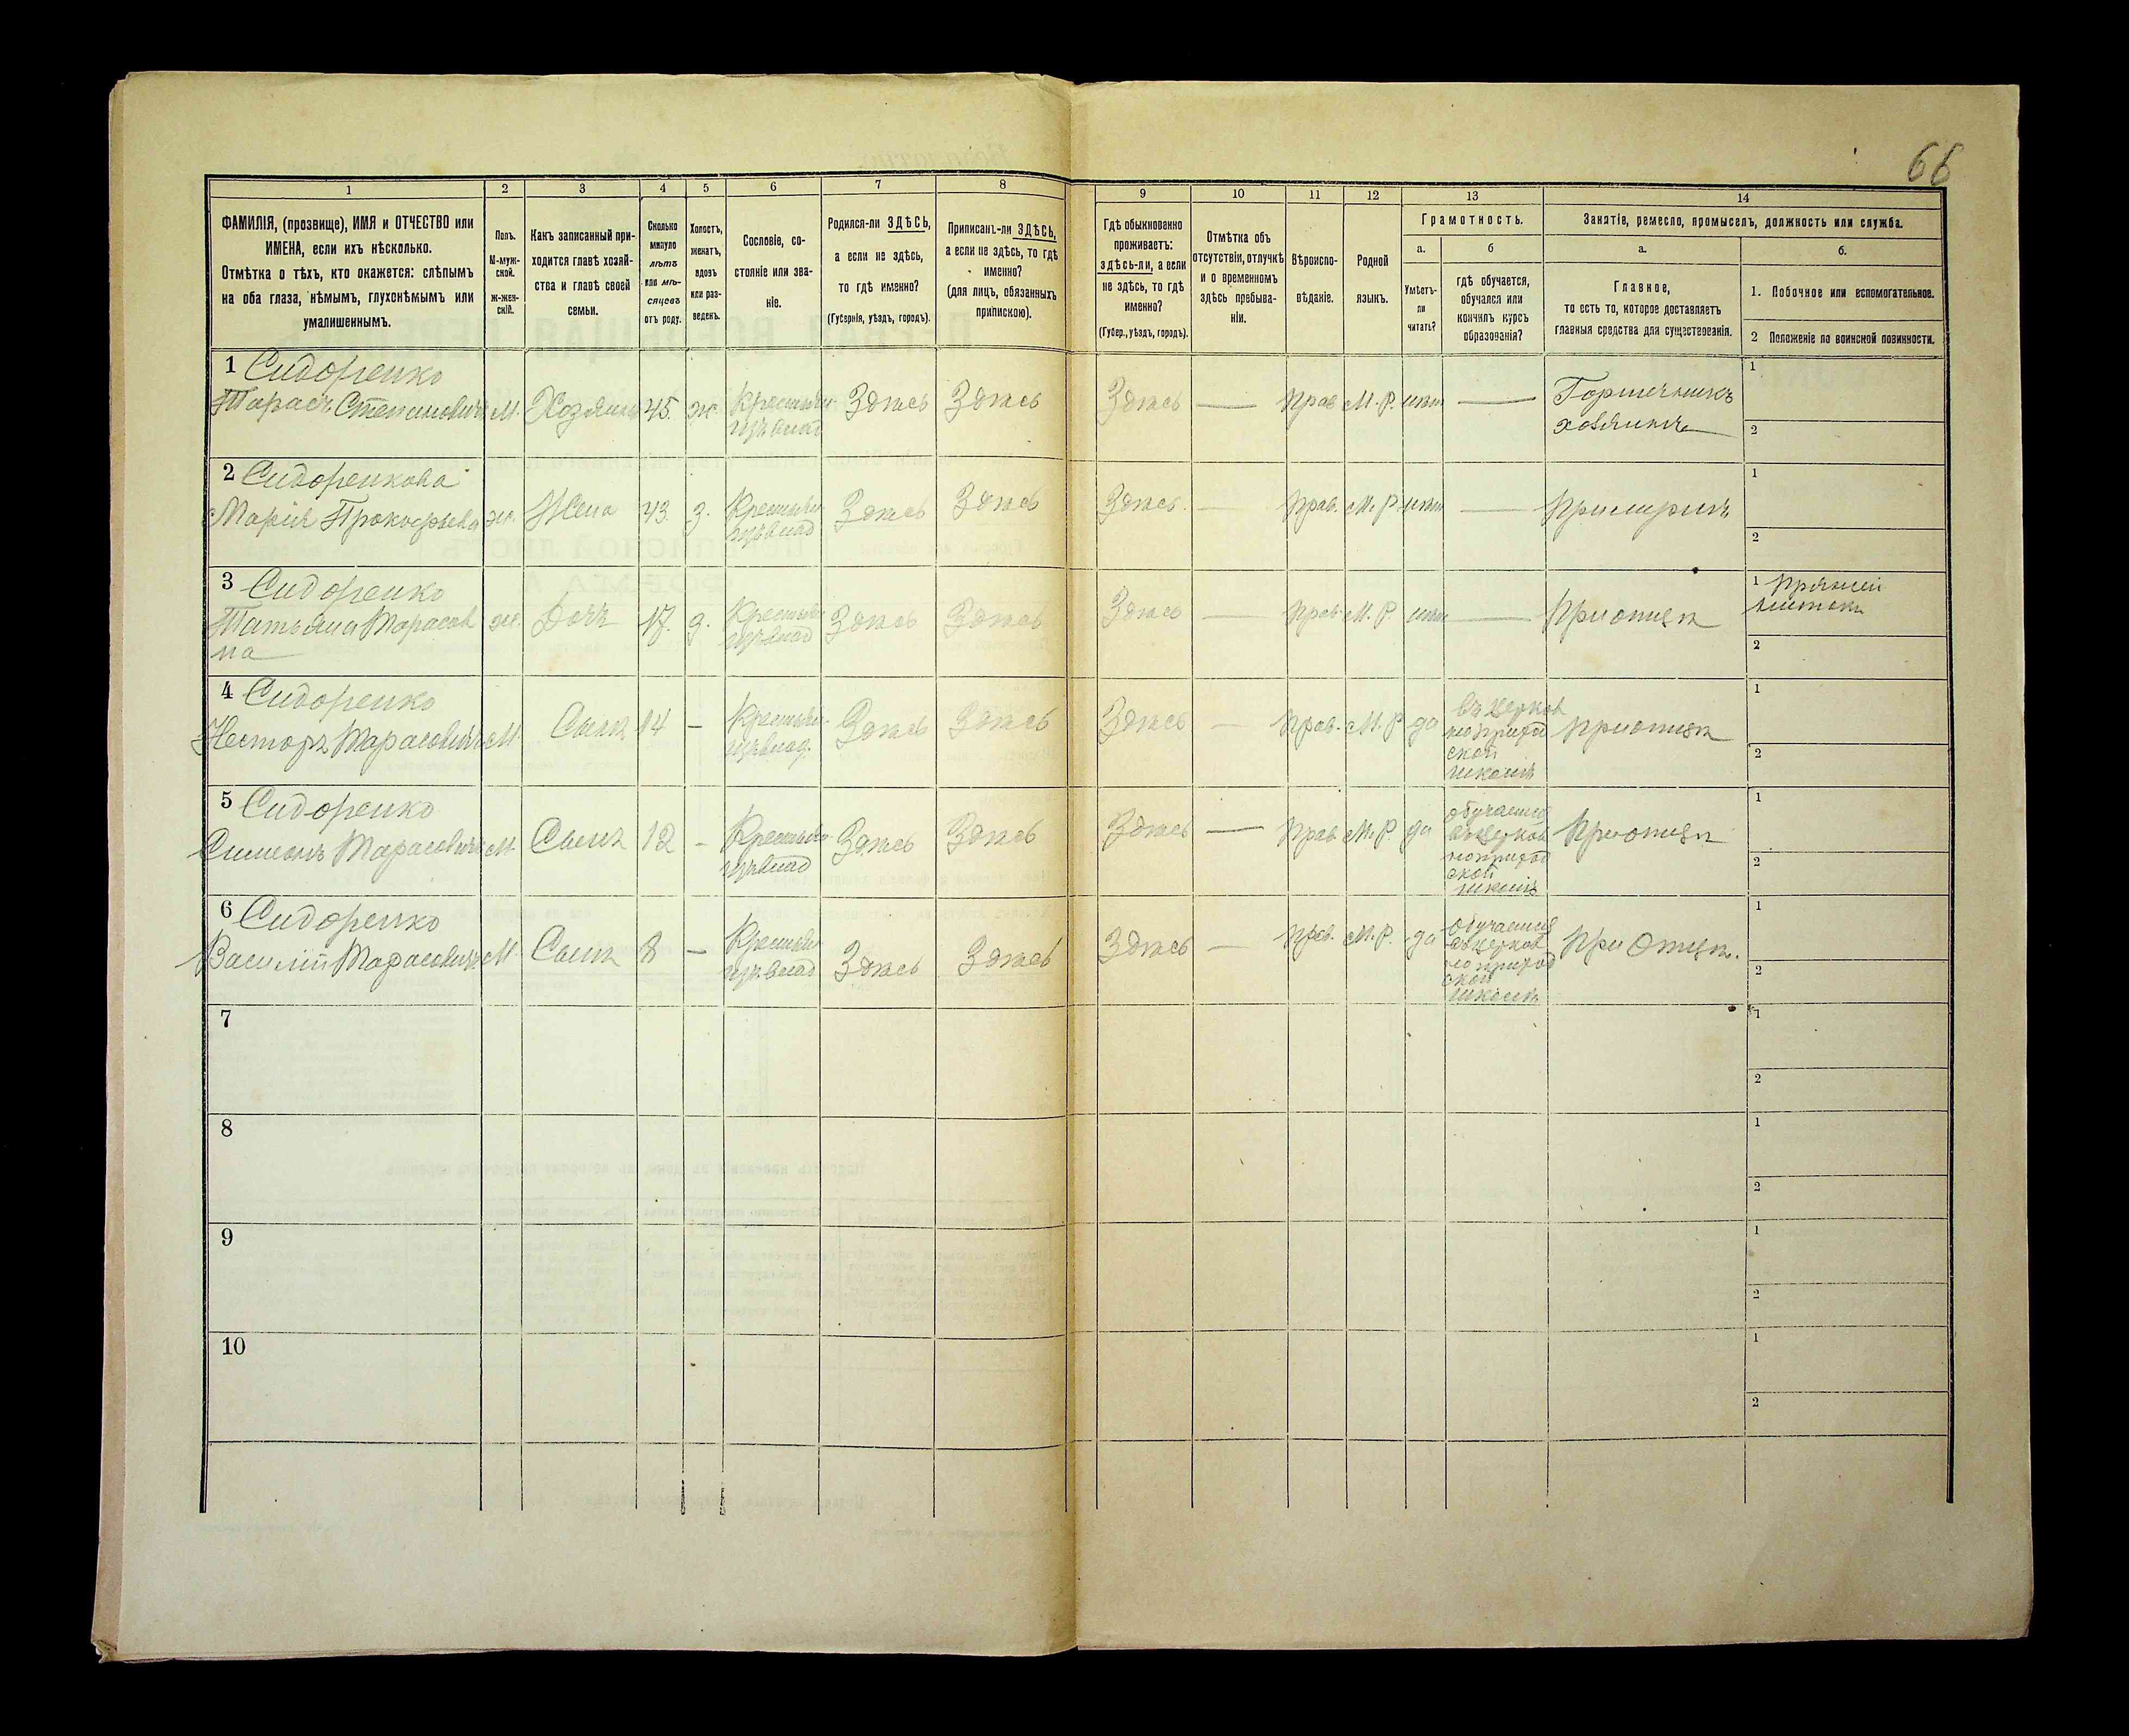 66
1
2
3
4
5
6
7
8
9
10
11
12
13
14
ФАМИЛІЯ, (прозвище), ИМЯ и ОТЧЕСТВО или
ИМЕНА, если ихъ нѣсколько.
Отмѣтка о тѣхъ, кто окажется: слѣпымъ
на оба глаза, нѣмымъ, глухонѣмымъ или
умалишеннымъ.
Полъ.
М-муж-
ской.
ж-жен-
скій.
Какъ записанный при-
ходится главѣ хозяй-
ства и главѣ своей
семьи.
Сколько
минуло
лѣтъ
или мѣ-
сяцевъ
отъ роду.
Холостъ,
женатъ,
вдовъ
или раз-
веденъ.
Сословіе, со-
стояніе или зва-
ніе.
Родился-ли ЗДѢСЬ,
а если не здѣсь,
то гдѣ именно?
(Губернія, уѣздъ, городъ).
Приписанъ-ли ЗДѢСЬ,
а если не здѣсь, то гдѣ
именно?
(для лицъ, обязанныхъ
припискою).
Гдѣ обыкновенно
проживаетъ:
здѣсь-ли, а если
не здѣсь, то гдѣ
именно?
(Губер., уѣздъ, городъ).
Отмѣтка объ
отсутствіи, отлучкѣ
и о временномъ
здѣсь пребыва-
ніи.
Вѣроиспо-
вѣданіе.
Родной
языкъ.
Грамотность.
а.
Умѣетъ-
ли
читать?
б
гдѣ обучается,
обучался или
кончилъ курсъ
образованія?
Занятіе, ремесло, промыселъ, должность или служба.
а.
Главное,
то есть то, которое доставляетъ
главныя средства для существованія.
б.
1. Побочное или вспомогательное.
2 Положеніе по воинской повинности.
1 Сидоренко
Тарасъ Степановичъ М. Хозяинъ 45. ж. Крестьян. Здѣсь Здѣсь Здѣсь — Прав М.Р. нѣт — Горшечникъ
изъ влад хозяинъ
1
2
2 Сидоренкова
Марія Прокофьева ж. Жена 43. з. Крестьян Здѣсь Здѣсь Здѣсь. — Прав. М.Р нѣт —
изъ влад
1
2
3 Сидоренко
Татьяна Тарасов ж. Дочь 17. д. Крестьян Здѣсь Здѣсь Здѣсь — Прав. М.Р. нѣт — При отцѣ
на изъ влад
1
2
4 Сидоренко
Несторъ Тарасовичъ М. Сынъ 14 — Крестьян. Здѣсь Здѣсь Здѣсь — Прав. М.Р да При отцѣ
изъ влад.
въ церков
но приход
ской
школѣ
1
2
5 Сидоренко
Симеонъ Тарасовичъ М. Сынъ 12 — Крестьян Здѣсь Здѣсь Здѣсь — Прав М.Р. да При отцѣ
изъ влад
обучается
въ церков
но приход
ской
школѣ
1
2
6 Сидоренко
Василій Тарасовичъ М. Сынъ 8 — Крестьян Здѣсь Здѣсь Здѣсь — Прав. М.Р. да При Отцѣ.
изъ влад
обучается
въ церков
но приход
ской
школѣ
1
2
7
1
2
8
1
2
9
1
2
10
1
2